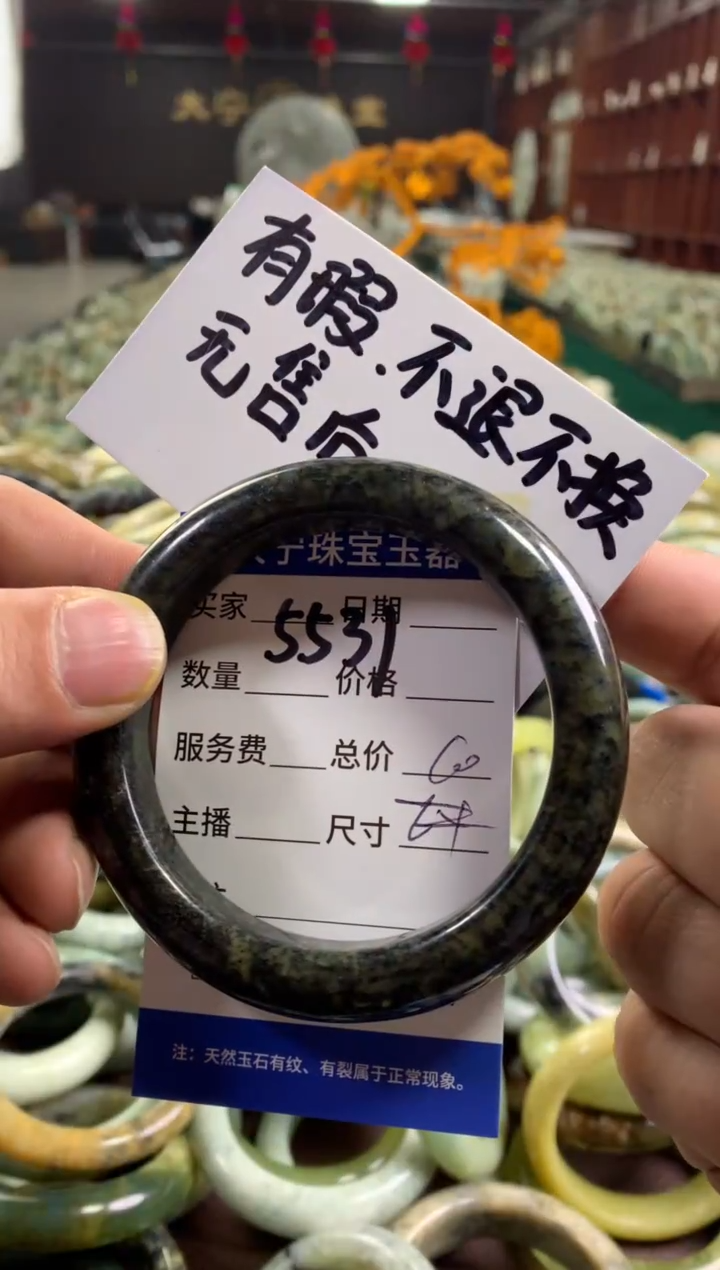 有瑕.不退不换
无售后
宁珠宝玉器
买家 日期
5531
数量 价格
服务费 总价 60
主播 尺寸
注：天然玉石有纹、有裂属于正常现象。